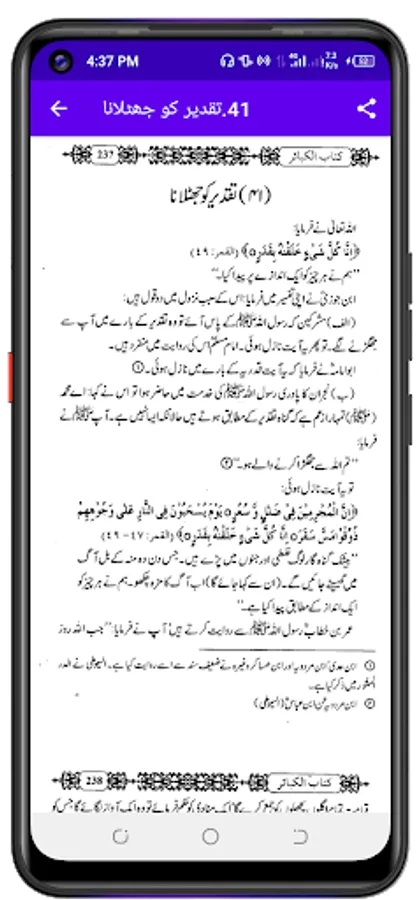 4:37 PM
4G 7.3 K/s
41.تقدیر کو جھٹلانا
237 کتاب الکبائر
(۴۱) تقدیر کو جھٹلانا
اللہ تعالیٰ نے فرمایا:
﴿اِنَّا كُلَّ شَيْءٍ خَلَقْنٰهُ بِقَدَرٍ﴾ (القمر: ۴۹)
’’ہم نے ہر چیز کو ایک اندازے پر پیدا کیا۔‘‘
ابن جوزیؒ نے اپنی تفسیر میں فرمایا: اس کے سبب نزول میں دو قول ہیں:
(الف) مشرکین مکہ رسول اللہ ﷺ کے پاس آئے تو وہ تقدیر کے بارے میں آپ سے
جھگڑنے لگے۔ تو پھر یہ آیت نازل ہوئی۔ امام مسلم اس کی روایت میں منفرد ہیں۔
ابو امامہ نے فرمایا کہ یہ آیت قدریہ کے بارے میں نازل ہوئی۔ ①
(ب) نجران کا پادری رسول اللہ ﷺ کی خدمت میں حاضر ہوا تو اس نے کہا: اے محمد
(ﷺ) تمہارا زعم ہے کہ گناہ تقدیر کے مطابق ہوتے ہیں حالانکہ ایسا نہیں ہے۔ آپ ﷺ نے
فرمایا:
’’تم اللہ سے جھگڑا کرنے والے ہو۔‘‘ ②
تو یہ آیت نازل ہوئی:
﴿اِنَّ الْمُجْرِمِيْنَ فِيْ ضَلٰلٍ وَّ سُعُرٍ ۝ يَوْمَ يُسْحَبُوْنَ فِي النَّارِ عَلٰى وُجُوْهِهِمْ
ذُوْقُوْا مَسَّ سَقَرَ ۝ اِنَّا كُلَّ شَيْءٍ خَلَقْنٰهُ بِقَدَرٍ﴾ (القمر: ۴۷-۴۹)
’’بیشک گناہ گار لوگ غلطی اور جنوں میں پڑے ہیں۔ جس دن وہ منہ کے بل آگ
میں گھسیٹے جائیں گے۔ (ان سے کہا جائے گا) اب آگ کا مزہ چکھو۔ ہم نے ہر چیز کو
ایک انداز کے مطابق پیدا کیا ہے۔‘‘
عمر بن خطابؓ رسول اللہ ﷺ سے روایت کرتے ہیں آپ نے فرمایا: ’’جب اللہ روز
① ابن عدی، ابن مردویہ اور ابن عساکر وغیرہ نے ضعیف سند سے اسے روایت کیا ہے۔ السیوطی نے الدر
المنثور میں ذکر کیا ہے۔
② ابن مردویہ عن ابن عباسؓ (السیوطی)
238 کتاب الکبائر